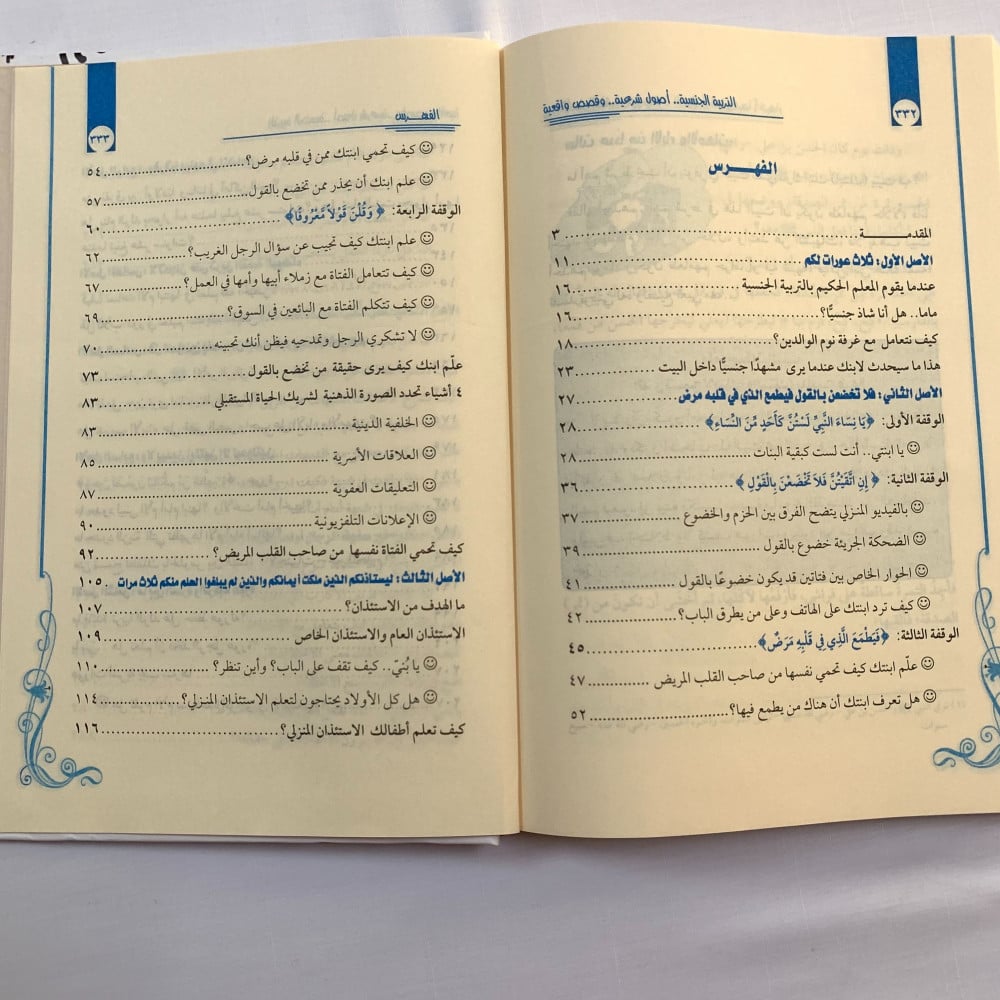 ٣٣٢
التربية الجنسية.. أصول شرعية.. وقصص واقعية
الفهـــرس
المقدمـــــــة ٣
الأصل الأول: ثلاث عورات لكم ١١
عندما يقوم المعلم الحكيم بالتربية الجنسية ١٦
ماما.. هل أنا شاذ جنسيًّا؟ ١٦
كيف نتعامل مع غرفة نوم الوالدين؟ ١٨
هذا ما سيحدث لابنك عندما يرى مشهدًا جنسيًّا داخل البيت ٢٣
الأصل الثاني: فلا تخضعن بالقول فيطمع الذي في قلبه مرض ٢٧
الوقفة الأولى: ﴿يَا نِسَاءَ النَّبِيِّ لَسْتُنَّ كَأَحَدٍ مِّنَ النِّسَاءِ﴾ ٢٨
يا ابنتي.. أنت لست كبقية البنات ٢٨
الوقفة الثانية: ﴿إِنِ اتَّقَيْتُنَّ فَلاَ تَخْضَعْنَ بِالْقَوْلِ﴾ ٣٦
بالفيديو المنزلي يتضح الفرق بين الحزم والخضوع ٣٧
الضحكة الجريئة خضوع بالقول ٣٩
الحوار الخاص بين فتاتين قد يكون خضوعًا بالقول ٤١
كيف ترد ابنتك على الهاتف وعلى من يطرق الباب؟ ٤٢
الوقفة الثالثة: ﴿فَيَطْمَعَ الَّذِي فِي قَلْبِهِ مَرَضٌ﴾ ٤٥
علّم ابنتك كيف تحمي نفسها من صاحب القلب المريض ٤٧
هل تعرف ابنتك أن هناك من يطمع فيها؟ ٥٢
الفهـــرس
٣٣٣
كيف تحمي ابنتك ممن في قلبه مرض؟ ٥٤
علم ابنك أن يحذر ممن تخضع بالقول ٥٧
الوقفة الرابعة: ﴿وَقُلْنَ قَوْلاً مَّعْرُوفًا﴾ ٦٠
علم ابنتك كيف تجيب عن سؤال الرجل الغريب؟ ٦٢
كيف تتعامل الفتاة مع زملاء أبيها وأمها في العمل؟ ٦٧
كيف تتكلم الفتاة مع البائعين في السوق؟ ٦٩
لا تشكري الرجل وتمدحيه فيظن أنك تحبينه ٧٠
علّم ابنك كيف يرى حقيقة من تخضع بالقول ٧٣
٤ أشياء تحدد الصورة الذهنية لشريك الحياة المستقبلي ٨٣
الخلفية الدينية ٨٣
العلاقات الأسرية ٨٥
التعليقات العفوية ٨٧
الإعلانات التلفزيونية ٩٠
كيف تحمي الفتاة نفسها من صاحب القلب المريض؟ ٩٢
الأصل الثالث: ليستأذنكم الذين ملكت أيمانكم والذين لم يبلغوا الحلم منكم ثلاث مرات ١٠٥
ما الهدف من الاستئذان؟ ١٠٧
الاستئذان العام والاستئذان الخاص ١٠٩
يا بُنيّ.. كيف تقف على الباب؟ وأين تنظر؟ ١١٠
هل كل الأولاد يحتاجون لتعلم الاستئذان المنزلي؟ ١١٤
كيف تعلم أطفالك الاستئذان المنزلي؟ ١١٦